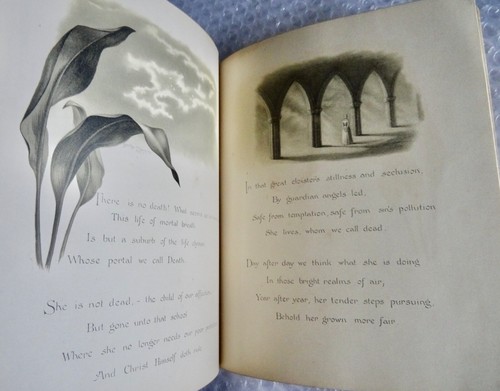 There is no death! What
This life of mortal breath
Is but a suburb of the life
Whose portal we call Death.
She is not dead, - the child of our affection,
But gone unto that school
Where she no longer needs our poor
And Christ Himself doth rule.
In that great cloister's stillness and seclusion,
By guardian angels led,
Safe from temptation, safe from sin's pollution
She lives, whom we call dead.
Day after day we think what she is doing
In those bright realms of air;
Year after year, her tender steps pursuing,
Behold her grown more fair